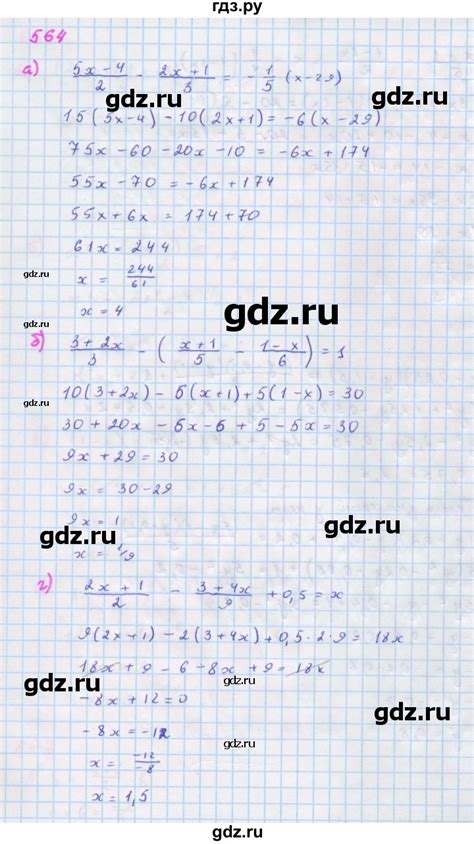 гдз.ру
564
а) (5x-4)/2 - (2x+1)/3 = -1/5 (x-29)
gdz.ru
gdz.ru
15(5x-4) -10(2x+1) = -6(x-29)
75x -60 -20x -10 = -6x +174
55x -70 = -6x +174
55x+6x = 174+70
61x = 244
gdz.ru
x = 244/61
x = 4
gdz.ru
б) (3+2x)/3 - ((x+1)/5 - (1-x)/6) = 1
gdz.ru
10(3+2x) - 6(x+1)+5(1-x) = 30
30 + 20x - 6x - 6 + 5 - 5x = 30
9x + 29 = 30
gdz.ru
9x = 30-29
9x = 1
gdz.ru
gdz.ru
x = 1/9
г) (2x+1)/2 - (3+4x)/9 + 0,5 = x
gdz.ru
9(2x+1) -2(3+4x) +0,5·2·9 = 18x
18x + 9 - 6 -8x +9 = 18x
gdz.ru
gdz.ru
-8x +12 = 0
-8x = -12
gdz.ru
x = -12/-8
x = 1,5
gdz.ru